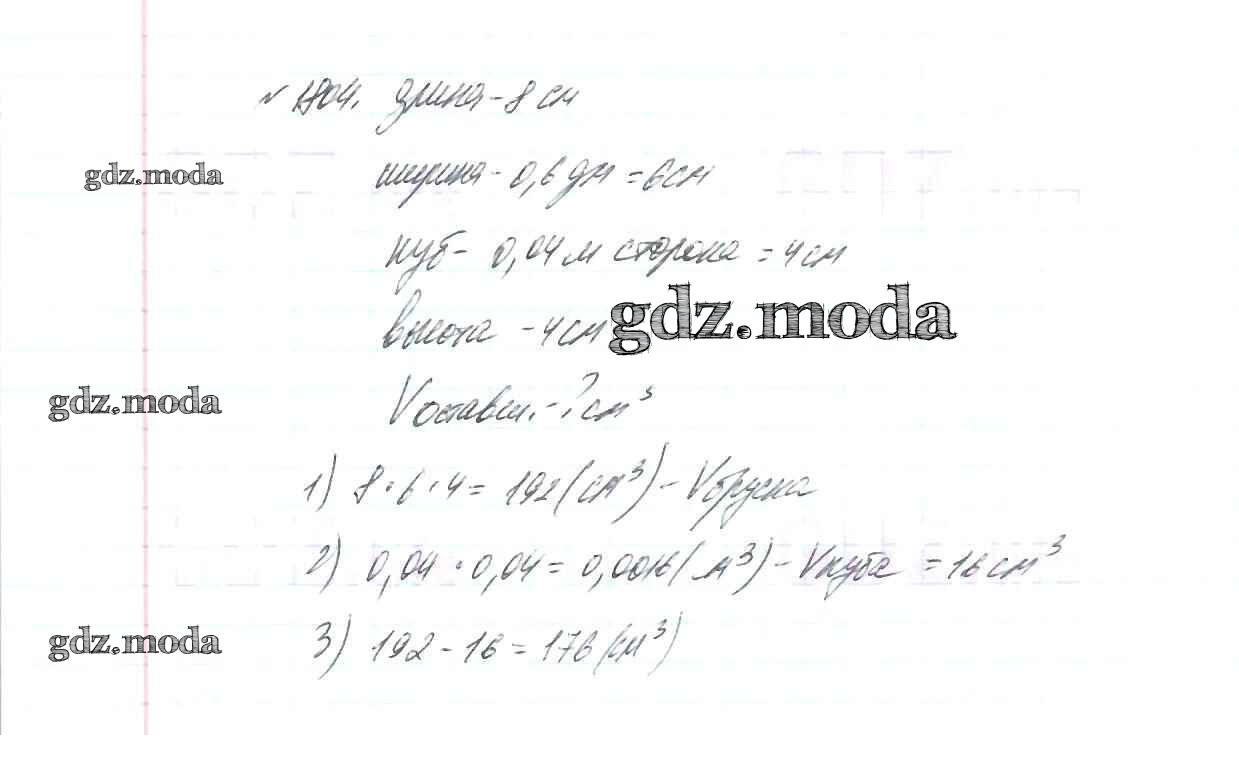 № 1804. длина - 8 см
gdz.moda
ширина - 0,6 дм = 6 см
куб - 0,04 м сторона = 4 см
высота - 4 см
gdz.moda
gdz.moda
V оставш. - ? см³
1) 8 · 6 · 4 = 192 (см³) - V бруска
2) 0,04 · 0,04 = 0,0016 (м³) - V куба = 16 см³
gdz.moda
3) 192 - 16 = 176 (см³)